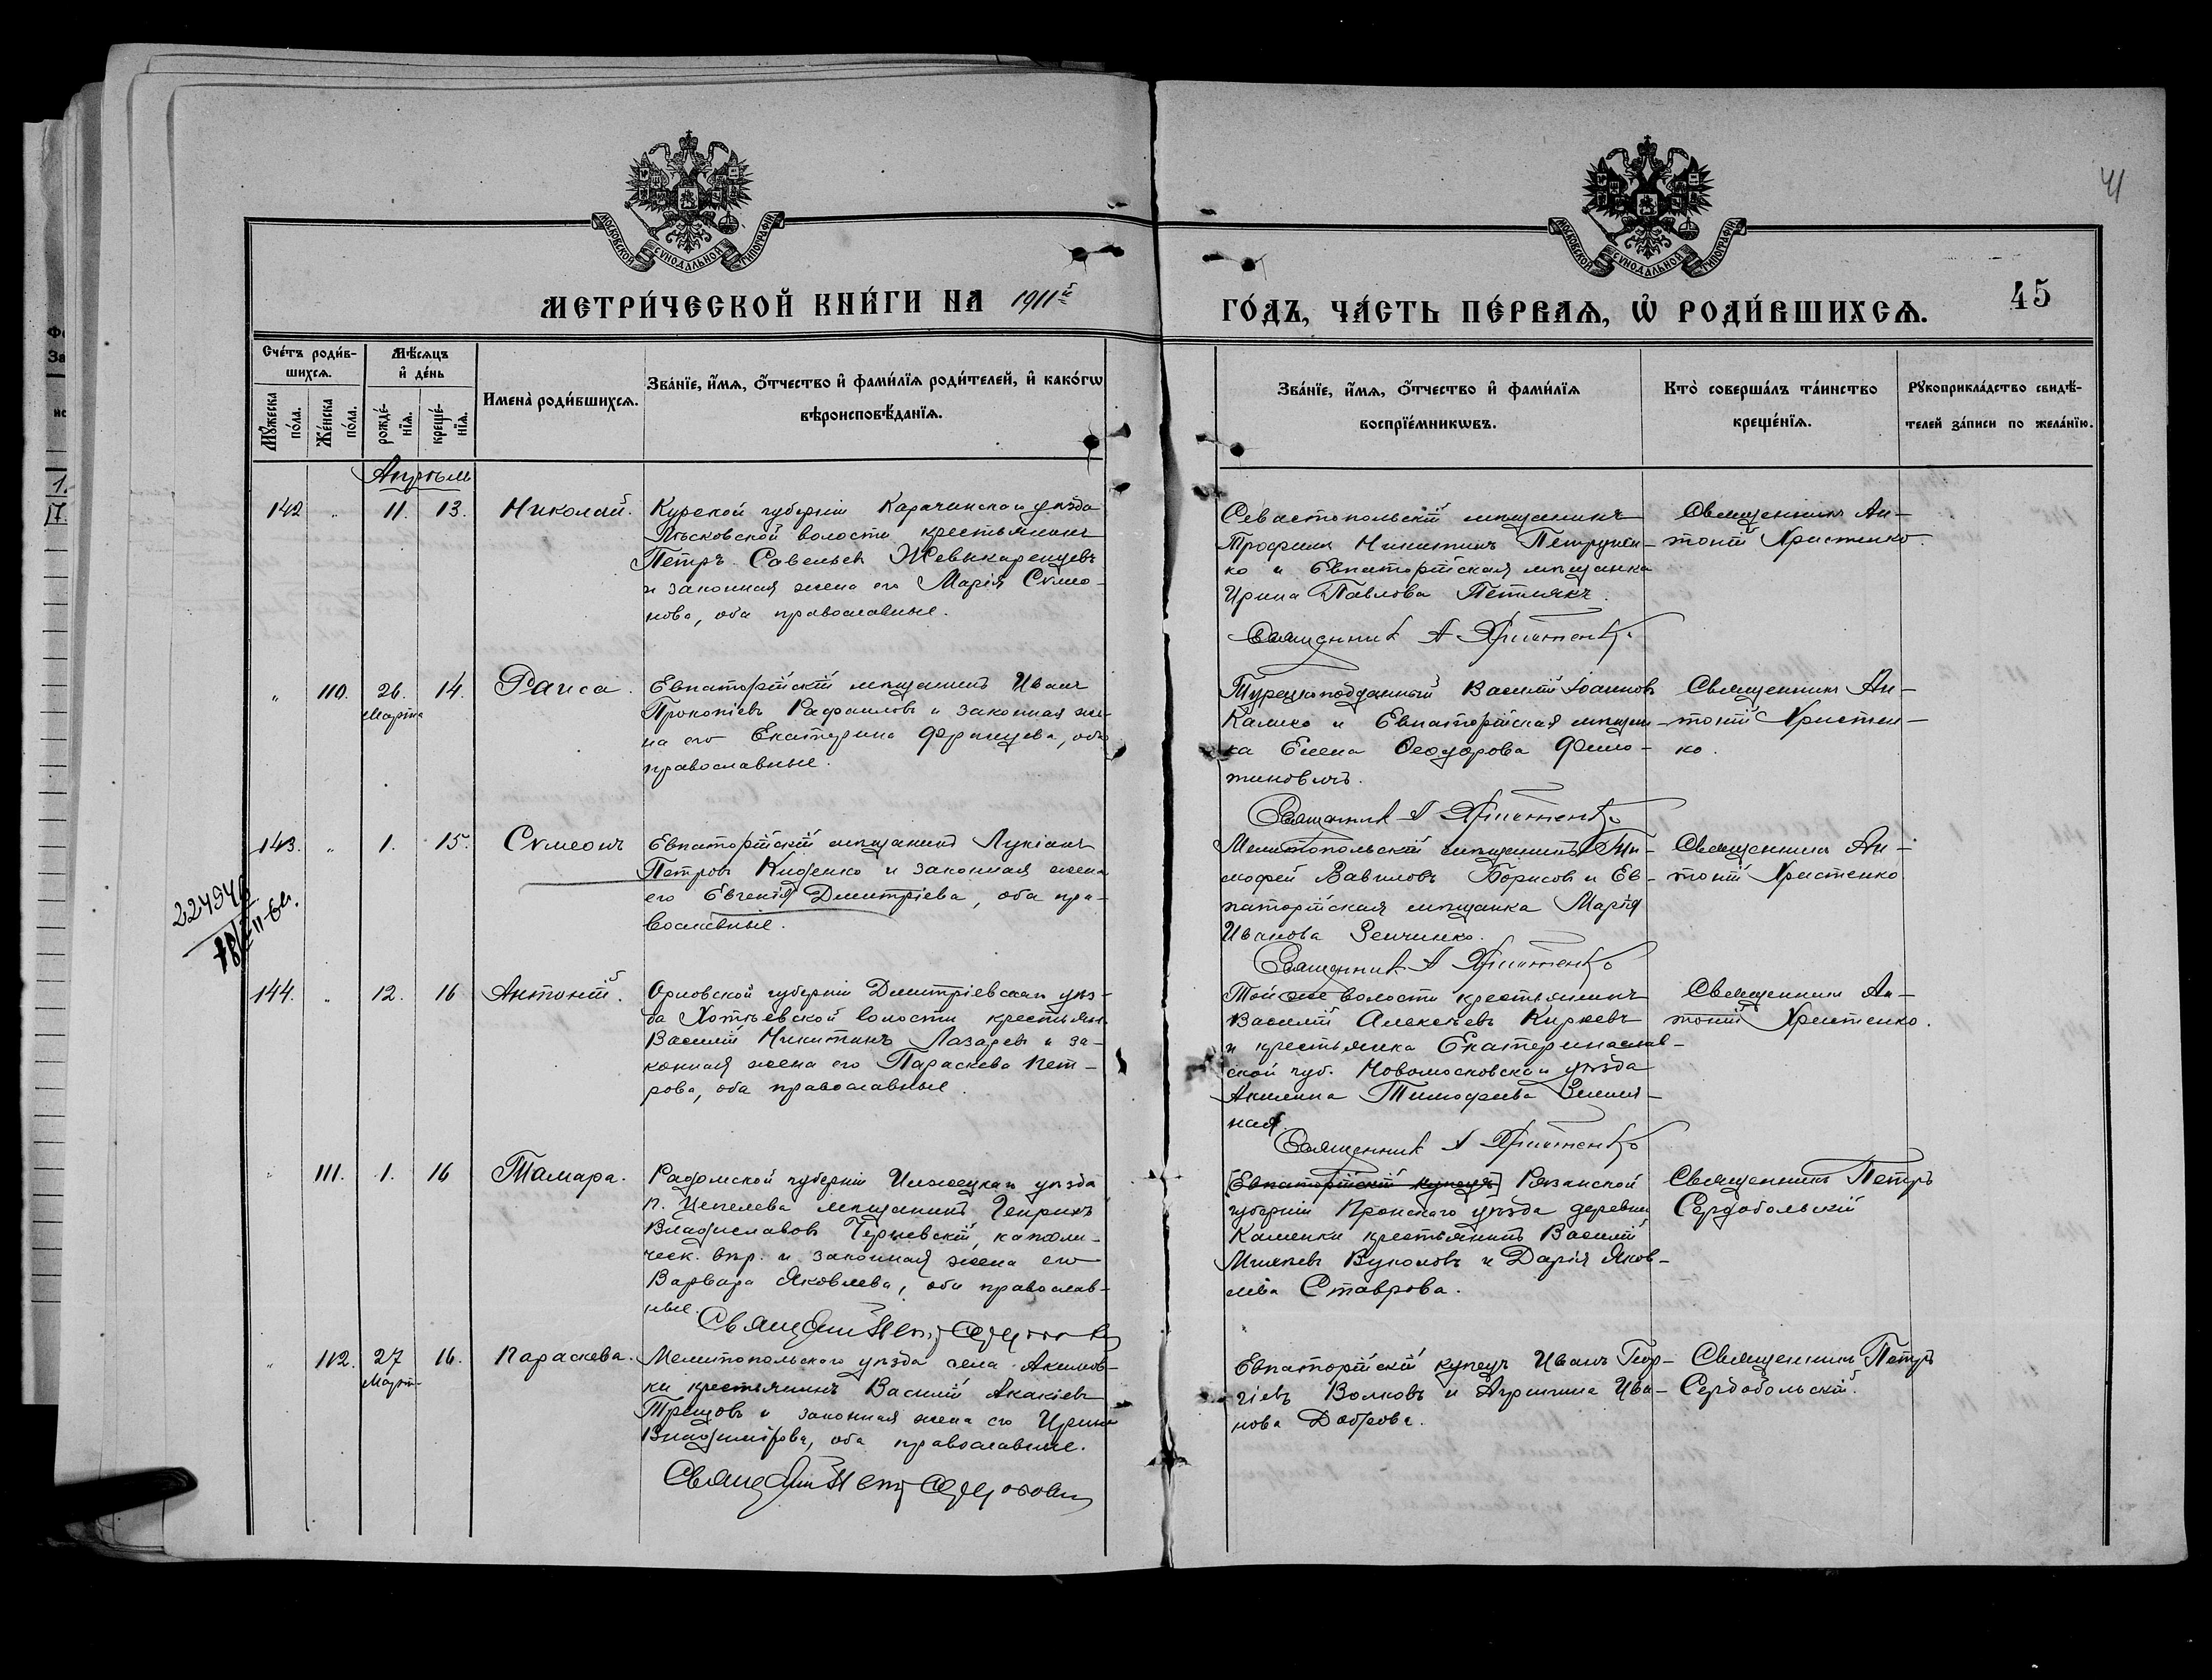 МОСКОВСКОЙ СѴНОДАЛЬНОЙ ТИПОГРАФІИ
МОСКОВСКОЙ СѴНОДАЛЬНОЙ ТИПОГРАФІИ
41
МЕТРИ́ЧЕСКОЙ КНИ́ГИ НА 1911й
ГО́ДЪ, ЧА́СТЬ ПЕ́РВАѦ, Ѡ҆ РОДИ́ВШИХСѦ.
45
Сче́тъ роди́в-
шихсѧ.
Мꙋ́жеска
по́ла.
Же́нска
по́ла.
Мѣ́сѧцъ
и҆ де́нь
рожде́-
нїѧ.
креще́-
нїѧ.
Имена̀ роди́вшихсѧ.
Зва́нїе, и҆́мѧ, ѻ҆́тчество и҆ фами́лїѧ роди́телей, и҆ како́гѡ
вѣроисповѣ́данїѧ.
Зва́нїе, и҆́мѧ, ѻ҆́тчество и҆ фами́лїѧ
воспрїе́мникѡвъ.
Кто̀ соверша́лъ та́инство
креще́нїѧ.
Рꙋкоприкла́дство свидѣ́-
телей за́писи по жела́нїю.
Апрѣль
142 " 11. 13. Николай.
Курской губерніи уѣзда
волости крестьянинъ
Петръ Савельевъ
и законная жена его Марія Сѵмео-
нова, оба православные.
Севастопольскій мѣщанинъ
Трофимъ Никитинъ Петрухен-
ко и Евпаторійская мѣщанка
Ирина Павлова
Священникъ Ан-
тоній Христенко.
Священник А Христенко
" 110. 26. 14. Раиса.
Марта
Евпаторійскій мѣщанинъ Иванъ
Прокопіевъ Рафаиловъ и законная же-
на его Екатерина Францева, оба
православные.
Турецкоподданный Василій Іоанновъ
и Евпаторійская мѣщан-
ка Елена Ѳеодорова
Священникъ Ан-
тоній Христен-
ко.
Священник А Христенко
143. " 1. 15. Сѵмеонъ
Евпаторійскій мѣщанинъ Лукіанъ
Петровъ Кищенко и законная жена
его Евгенія Димитріева, оба пра-
вославные.
Мелитопольскій мѣщанинъ Ти-
мофей Вавиловъ Борисовъ и Ев-
паторійская мѣщанка Марія
Иванова Зенченко.
Священникъ Ан-
тоній Христенко
224946
Священник А Христенко
144. " 12. 16 Антоній.
Орловской губерніи Димитріевскаго уѣз-
да Хотѣевской волости крестьян.
Василій Никитинъ Лазаревъ и за-
конная жена его Параскева Пет-
рова, оба православные.
Той же волости крестьянинъ
Василій Алексѣевъ Киреевъ
и крестьянка Екатеринослав-
ской губ. Новомосковскаго уѣзда
Акилина Тимофеева
ная.
Священникъ Ан-
тоній Христенко.
Священник А Христенко
" 111. 1. 16 Тамара.
Радомской губерніи Илжецкаго уѣзда
п. Цепелева мѣщанинъ Генрихъ
Владиславовъ Черневскій, католи-
ческ. вѣр. и законная жена его
Варвара Яковлева, оба православ-
ные.
[Евпаторійскій купецъ] Рязанской
губерніи Пронскаго уѣзда деревни
Каменки крестьянинъ Василій
Вуколовъ и Дарія Яков-
лева Ставрова.
Священникъ Петръ
Сердобольскій
" 112. 27 16. Параскева.
Март-
Мелитопольскаго уѣзда села Акимов-
ки крестьянинъ Василій Акакіевъ
Трещовъ и законная жена его Ирина
Владимірова, оба православные.
Евпаторійскій купецъ Иванъ Геор-
гіевъ Волковъ и Агрипина Ива-
нова Доброва.
Священникъ Петръ
Сердобольскій.